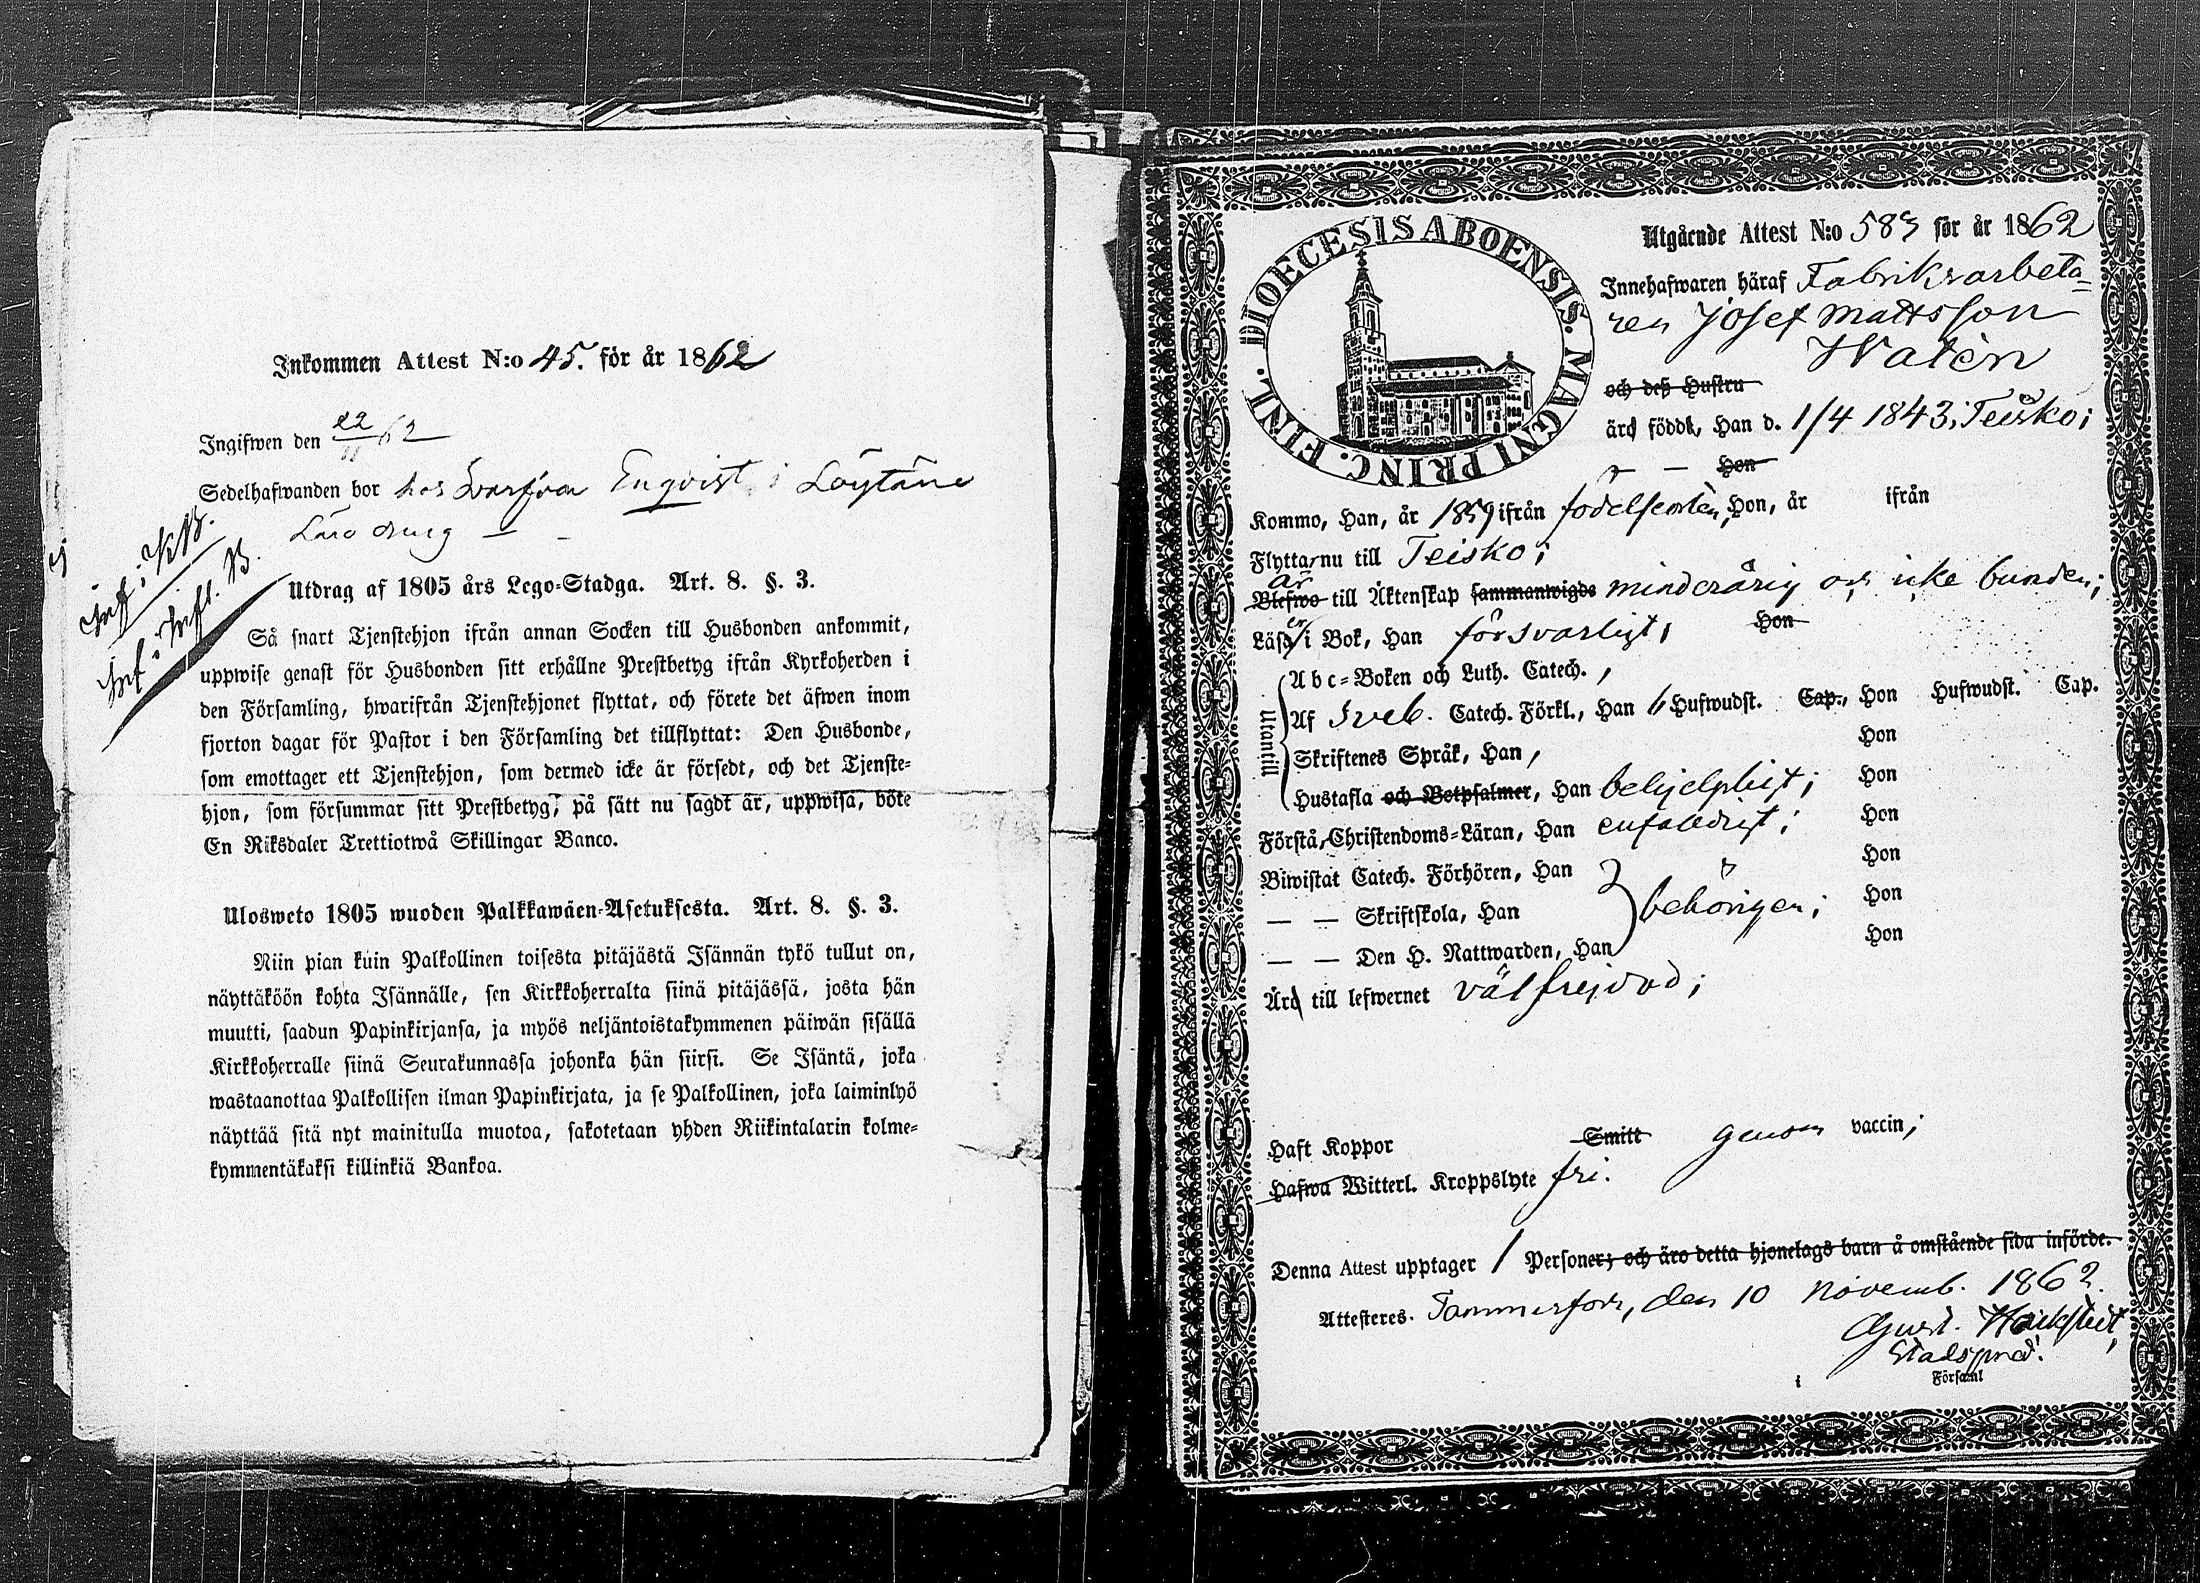 Inkommen Attest N:o 45. för år 1862
Ingifwen den 22/11 62
Sedelhafwanden bor hos Svarfvar Enqvist i Löytäne
Inf. i KB.
Inf. i Infl. B.
Utdrag af 1805 års Lego-Stadga. Art. 8. §. 3.
Så snart Tjenstehjon ifrån annan Socken till Husbonden ankommit,
uppwise genast för Husbonden sitt erhållne Prestbetyg ifrån Kyrkoherden i
den Församling, hwarifrån Tjenstehjonet flyttat, och förete det äfwen inom
fjorton dagar för Pastor i den Församling det tillflyttat: Den Husbonde,
som emottager ett Tjenstehjon, som dermed icke är försedt, och det Tjenste-
hjon, som försummar sitt Prestbetyg, på sätt nu sagdt är, uppwisa, böte
En Riksdaler Trettiotwå Skillingar Banco.
Ulosweto 1805 wuoden Palkkawäen-Asetuksesta. Art. 8. §. 3.
Niin pian kuin Palkollinen toisesta pitäjästä Isännän tykö tullut on,
näyttäköön kohta Isännälle, sen Kirkkoherralta siinä pitäjässä, josta hän
muutti, saadun Papinkirjansa, ja myös neljäntoistakymmenen päiwän sisällä
Kirkkoherralle siinä Seurakunnassa johonka hän siirsi. Se Isäntä, joka
wastaanottaa Palkollisen ilman Papinkirjata, ja se Palkollinen, joka laiminlyö
näyttää sitä nyt mainitulla muotoa, sakotetaan yhden Riikintalarin kolme-
kymmentäkaksi killinkiä Bankoa.
DIOECESIS ABOENSIS. MAGNI PRINC. FINL.
Utgående Attest N:o 583 för år 1862
Innehafwaren häraf Fabriksarbeta=
ren Josef Mattsson
Walén
och deß Hustru
äro födde, Han d. 1/4 1843 i Teisko;
Hon
Kommo, Han, år 1859 ifrån födelseorten, Hon, år ifrån
Flytta nu till Teisko;
är
Blefwo till Äktenskap sammanwigde minderårig och icke bunden;
Läsa i Bok, Han försvarligt; Hon
Utantill
Abc-Boken och Luth. Catech. ,
Af Sveb. Catech. Förkl., Han 6 Hufwudst. Cap., Hon Hufwudst. Cap.
Skriftenes Språk, Han, Hon
Hustafla och Botpsalmer, Han behjelpligt; Hon
Förstå Christendoms-Läran, Han enfaldigt; Hon
Biwistat Catech. Förhören, Han Hon
— — Skriftskola, Han behörigen; Hon
— — Den H. Nattwarden, Han Hon
Äro till lefwernet välfrejdad;
Haft Koppor Smitt genom vaccin;
Hafwa Witterl. Kroppslyte fri.
Denna Attest upptager 1 Personer; och äro detta hjonelags barn å omstående sida införde.
Attesteres. Tammerfors, den 10 Novemb. 1862.
Gust.
Stadspred.
i Församl